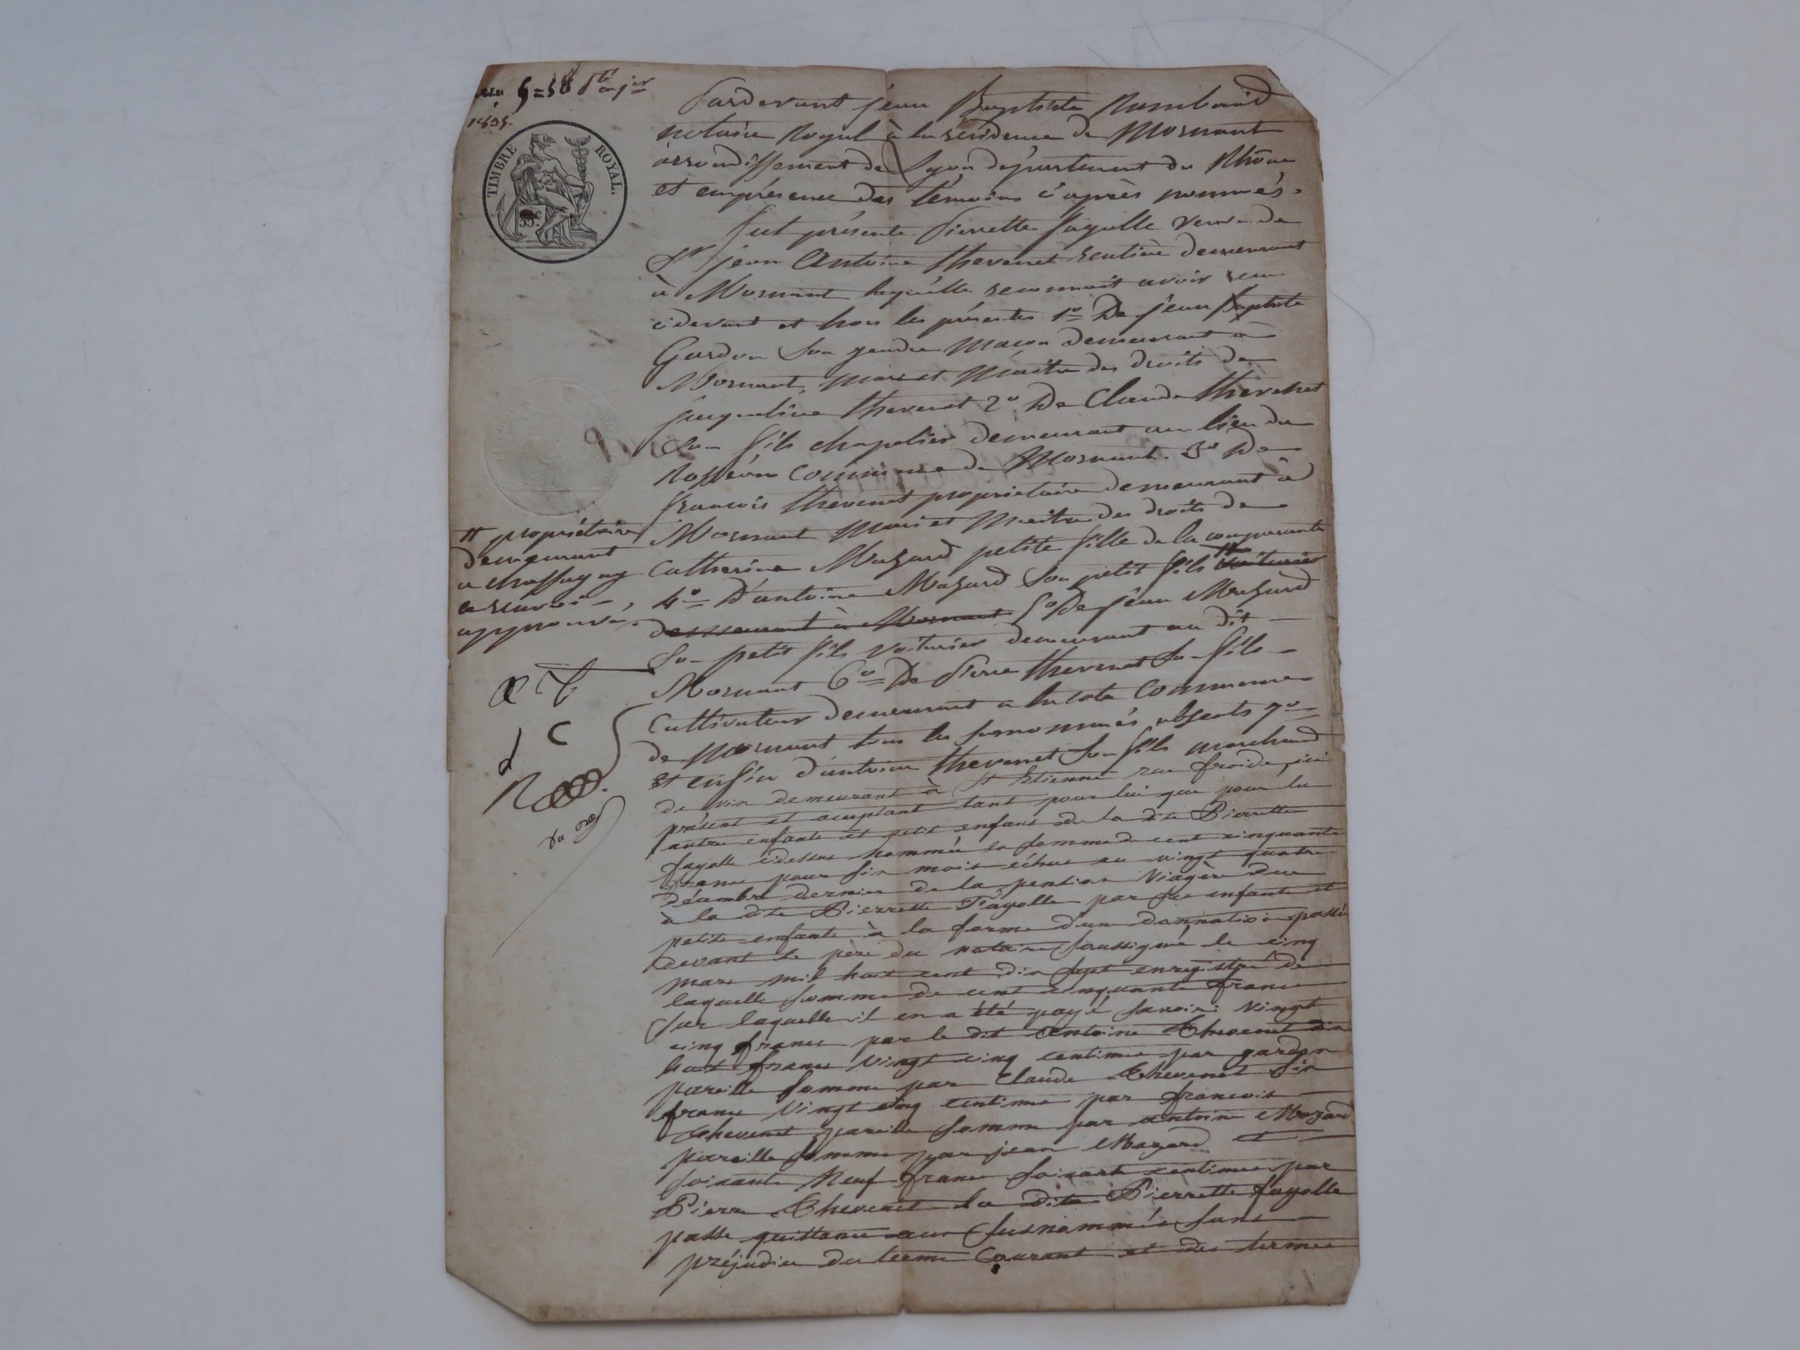 1835.
TIMBRE ROYAL.
35c
Pardevant jean Baptiste
notaire Royal à la résidence de Mornant
arrondissement de Lyon département du Rhône
et en présence des témoins c'après nommés.
fut présente Pierrette fayolle veuve de
Sr jean Antoine thevenet rentière demeurant
à Mornant laquelle reconnait avoir recu
cidevant et hors les présentes 1o De jean Baptiste
Gardon son gendre Macon demeurant à
Mornant, Mari et Maitre des droits de
jacqueline thevenet 2o De Claude thevenet
son fils chapelier demeurant au lieu de
commune de Mornant. 3o De
francois thevenet propriétaire demeurant à
Mornant Mari et Maitre des droits de
Catherine Mazard petite fille de la comparante
4o D'antoine Mazard son petit fils voiturier
demeurant à Mornant 5o De jean Mazard
son petit fils voiturier demeurant au dit
Mornant 6o De Pierre thevenet son fils
Cultivateur demeurant a la cote Commune
de Mornant tous les susnommés absents 7o
Et enfin d'antoine thevenet son fils marchand
de vin demeurant à St Etienne rue froide, ici
présent et acceptant tant pour lui que pour les
autres enfants et petit enfans de la dite Pierrette
fayolle cidessus nommée la somme de cent cinquante
francs pour six mois échus au vingt quatre
décembre dernier de la pention viagère due
à la dite Pierrette Fayolle par ses enfants et
petits enfants à la forme d'un donnation passée
devant le père du notaire soussigné le cinq
mars mil huit cent dix sept enregistré de
laquelle somme de cent cinquante francs
sur laquelle il en a été payé savoir vingt
cinq francs par le dit Antoine Thevenet dix
huit francs vingt cinq centimes par gardon
pareille somme par Claude Thevenet six
francs vingt cinq centimes par francois
Thevenet pareille somme par antoine Mazard
pareille somme par jean Mazard et
soixante Neuf francs soixante centimes par
Pierre Thevenet la dite Pierrette fayolle
passe quittance aux susnommés sans
préjudice du terme Courant et des termes
propriétaire
demeurant
a chassagny
a renvoi
approuvé.